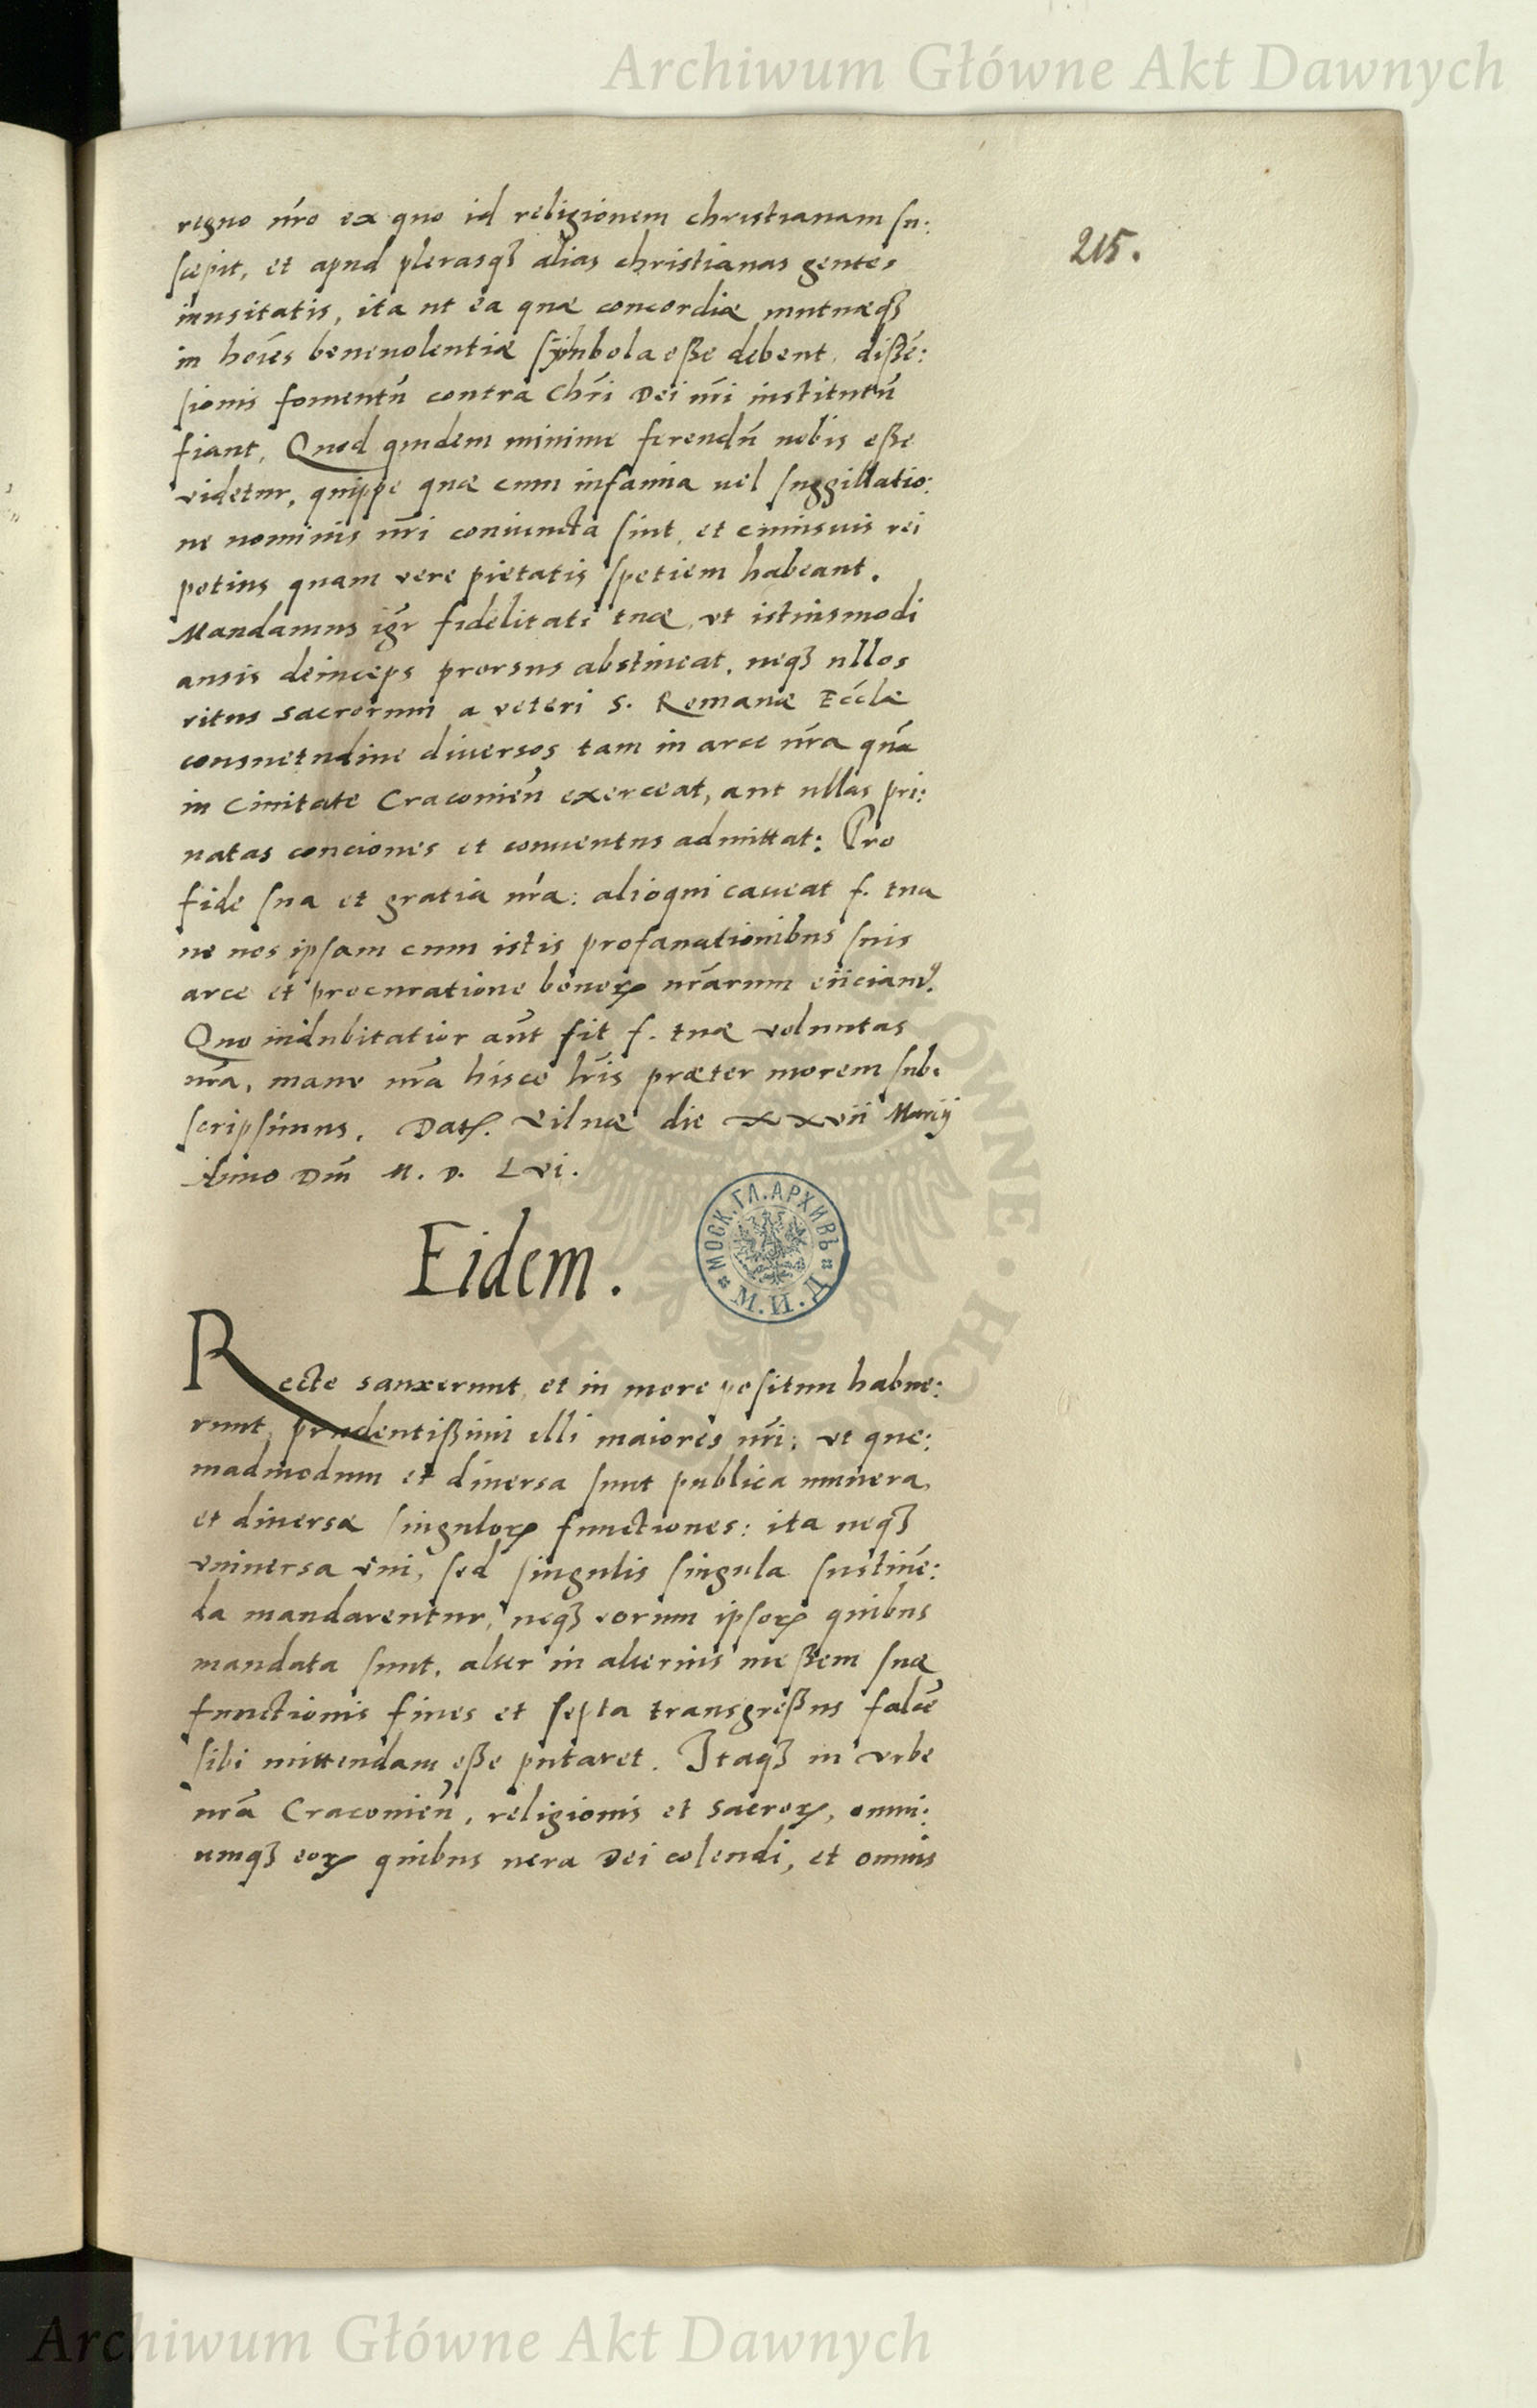 Archiwum Główne Akt Dawnych
215.
regno nr̃o ex quo id religionem christianam su:
scepit, et apud plerasq3 alias christianas gentes
inusitatis, ita ut ea quæ concordiæ mutuæq3
in hoı̃es beneuolentiæ symbola eße debent, dißẽ:
sionis fomentũ contra Chr̃i Dei nr̃i institutũ
fiant, Quod quidem minime ferendũ nobis eße
videtur, quippe quæ cum infamia uel suggillatio:
ne nominis nr̃i coniuncta sint, et cuiusuis rei
potius quam vere pietatis spetiem habeant.
Mandamus igr̃ fidelitati tuæ, ut istiusmodi
ausis deinceps prorsus abstineat, neq3 ullos
ritus sacrorum a veteri S. Romanæ Eccl̃æ
consuetudine diuersos tam in arce nr̃a quã
in Ciuitate Cracouien̄ exerceat, aut ullas pri:
uatas conciones et conuentus admittat: Pro
fide sua et gratia nr̃a: alioqui caueat f. tua
ne nos ipsam cum istis profanationibus suis
arce et procuratione bonoꝝ nr̃arum eiiciamꝰ.
Quo indubitatior aũt sit f. tuæ voluntas
nr̃a, manu nr̃a hisce lr̃is præter morem sub:
scripsimus. Datꝭ. Vilnæ die xxvii Marcij
Anno Dnĩ M. D. Lvi.
Eidem.
МОСК. ГЛ. АРХИВЪ М. И. Д
Recte sanxerunt, et in more positum habue:
runt, prudentißimi illi maiores nr̃i; ut que:
madmodum et diuersa sunt publica munera,
et diuersæ singuloꝝ functiones: ita neq3
vniuersa vni, sed singulis singula sustinẽ:
da mandarentur, neq3 eorum ipsoꝝ quibus
mandata sunt, alter in alterius meßem suæ
functionis fines et septa transgreßus falcẽ
sibi mittendam eße putaret. Itaq3 in vrbe
nr̃a Cracouien̄, religionis et sacroꝝ, omni:
umq3 eoꝝ quibus uera Dei colendi, et omnis
Archiwum Główne Akt Dawnych